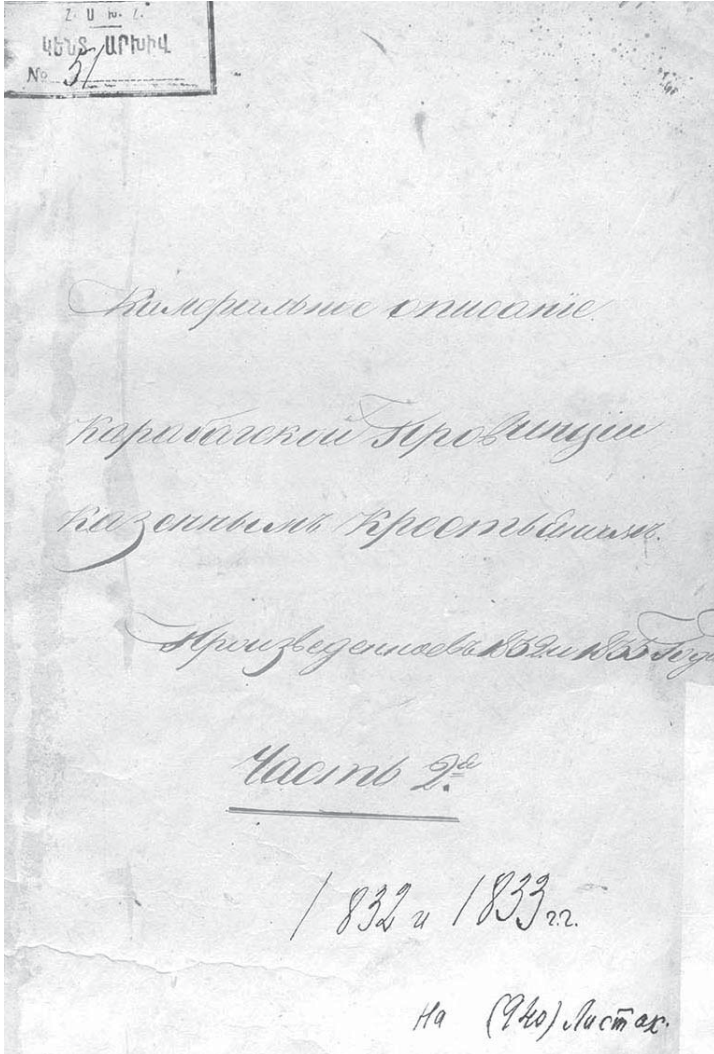 Հ. Ս. Խ. Հ.
ԿԵՆՏ. ԱՐԽԻՎ
№ 51
Камеральное описаніе
Карабагской Провинціи
казеннымъ Крестьянамъ.
Произведенное въ 1832 и 1833 Года
Часть 2.ая
1832 и 1833 г.г.
На (940) Листах.